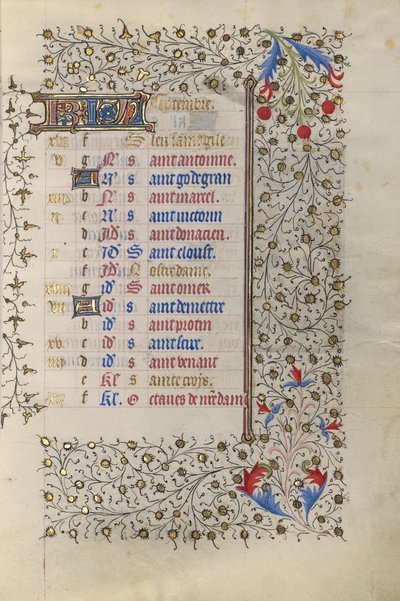 Septembre.
xvi f S leu saint gile
v g N S aint antonine.
A N S aint godegran
xiii b N S aint marcel.
ii c N S aint victorin
d N S aint donacien.
x Id S aint cloust.
Id N ostre dame.
xviii g id S aint omer
vii A id S aint demettre
b id S aint protin
xv id S aint
iiii d id S aint venant
e kl S ainte croys.
xii f kl. O ctaves de nre dame